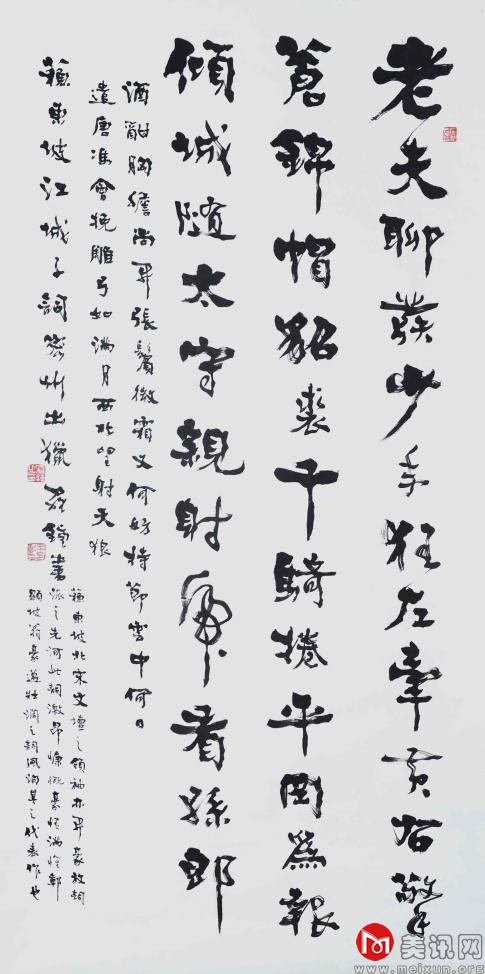 老夫聊發少年狂左牽黃右擎
蒼錦帽貂裘千騎捲平岡為報
傾城隨太守親射虎看孫郎
酒酣胸膽尚開張鬢微霜又何妨持節雲中何日
遣唐馮會挽雕弓如滿月西北望射天狼
蘇東坡江城子詞密州出獵 鐘書
蘇東坡北宋文壇之領袖亦開豪放詞
派之先河此詞激昂慷慨豪情滿懷彰
顯坡翁豪邁壯濶之詞風洵其之代表作也
美讯网
www.meixun.org